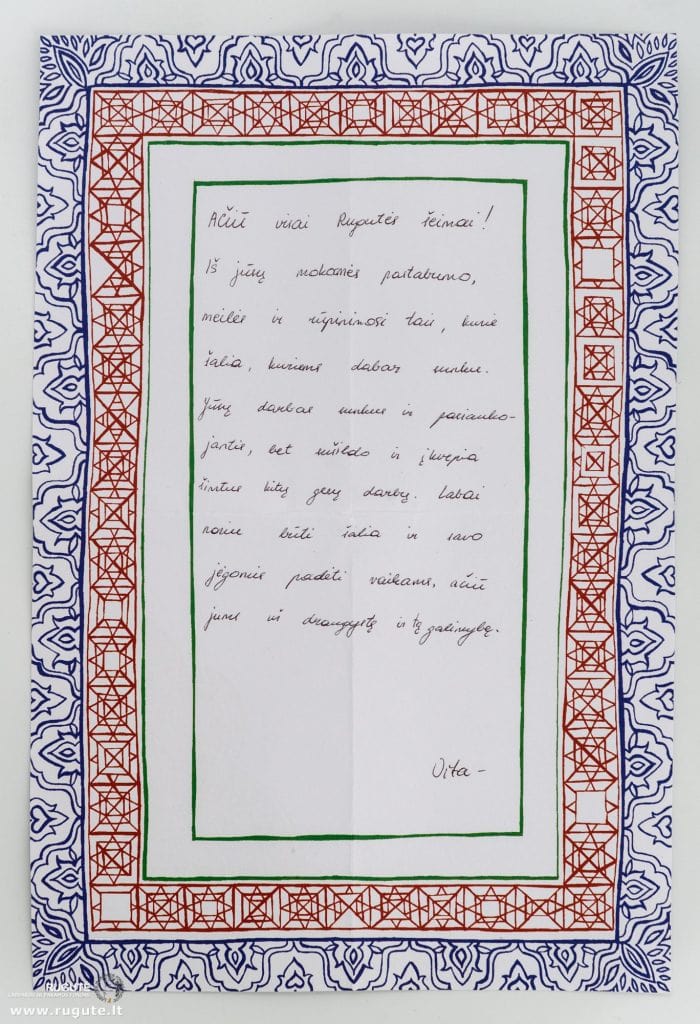 AČIŪ visai Rugutės šeimai!
Iš jūsų mokomės pastabumo,
meilės ir rūpinimosi tais, kurie
šalia, kuriems dabar sunku.
Jūsų darbas sunkus ir pasiauko-
jantis, bet sušildo ir įkvepia
šimtus kitų gerų darbų. Labai
noriu būti šalia ir savo
jėgomis padėti vaikams, ačiū
jums už draugystę ir tą galimybę.
Vita-
RUGUTĖ
www.rugute.lt